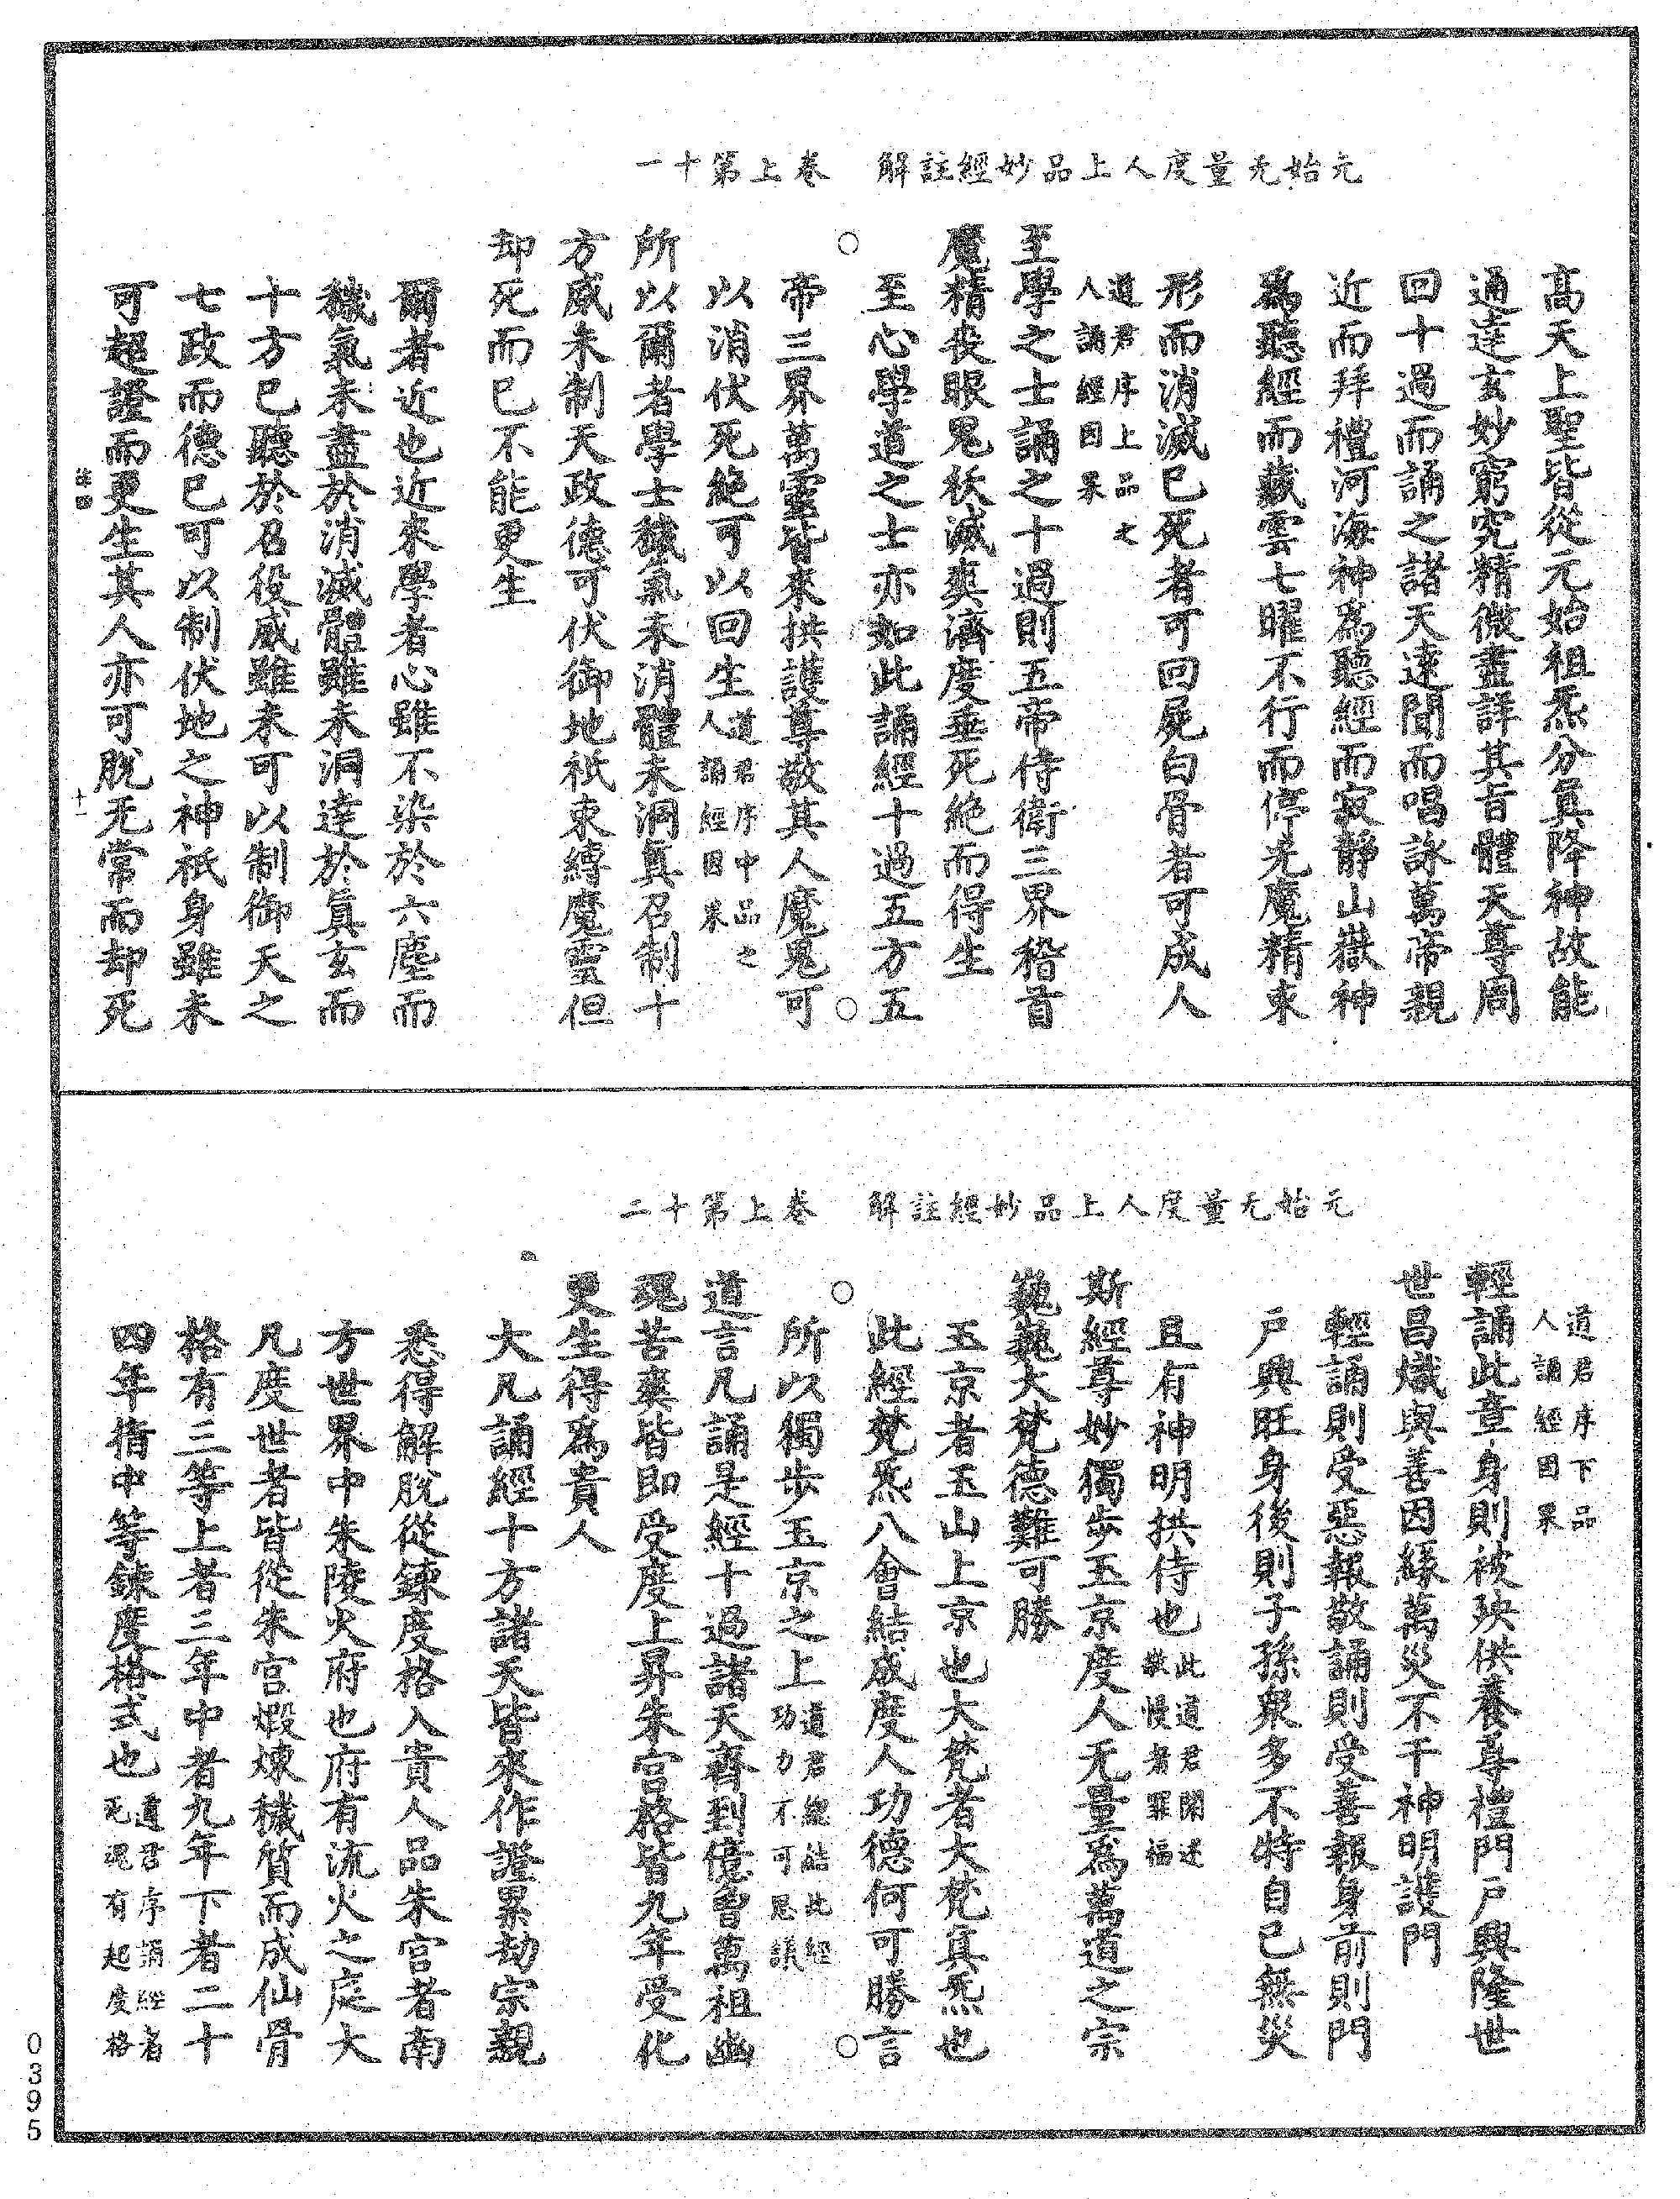 元始无量度人上品妙經註解　卷上第十一
高天上聖皆從元始祖炁分真降神故能
通達玄妙窮究精微盡詳其旨體天尊周
回十過而誦之諸天遠聞而唱詠萬帝親
近而拜禮河海神為聽經而寂靜山嶽神
為聽經而藏雲七曜不行而停光魔精束
形而消滅已死者可回屍白骨者可成人
道君序上品之
人誦經因果
至學之士誦之十過則五帝侍衛三界稽首
魔精喪眼鬼祅滅爽濟度垂死絕而得生
至心學道之士亦如此誦經十過五方五
帝三界萬靈皆來拱護尊敬其人魔鬼可
以消伏死絕可以回生道君序中品之
人誦經因果
所以爾者學士穢氣未消體未洞真召制十
方威未制天政德可伏御地祇束縛魔靈但
却死而已不能更生
爾者近也近來學者心雖不染於六塵而
穢氣未盡於消滅體雖未洞達於真玄而
十方已聽於召役威雖未可以制御天之
七政而德已可以制伏地之神祇身雖未
可超證而更生其人亦可脫无常而却死
十一
元始无量度人上品妙經註解　卷上第十二
道君序下品
人誦經因果
輕誦此章身則被殃供養尊禮門戶興隆世
世昌熾與善因緣萬災不干神明護門
輕誦則受惡報敬誦則受善報身前則門
戶興旺身後則子孫衆多不特自已無災
且有神明拱侍也此道君開述
敬慢者罪福
斯經尊妙獨步玉京度人无量為萬道之宗
巍巍大梵德難可勝
玉京者玉山上京也大梵者大梵真炁也
此經梵炁八會結成度人功德何可勝言
所以獨步玉京之上道君總結此經
功力不可思議
道言凡誦是經十過諸天齊到億曾萬祖幽
魂苦爽皆即受度上昇朱宮格皆九年受化
更生得為貴人
大凡誦經十方諸天皆來作證累劫宗親
悉得解脫從鍊度格入貴人品朱宮者南
方世界中朱陵火府也府有流火之庭大
凡度世者皆從朱宮煅煉穢質而成仙骨
格有三等上者三年中者九年下者二十
四年指中等鍊度格式也道君序誦經者
死魂有起度格
0395